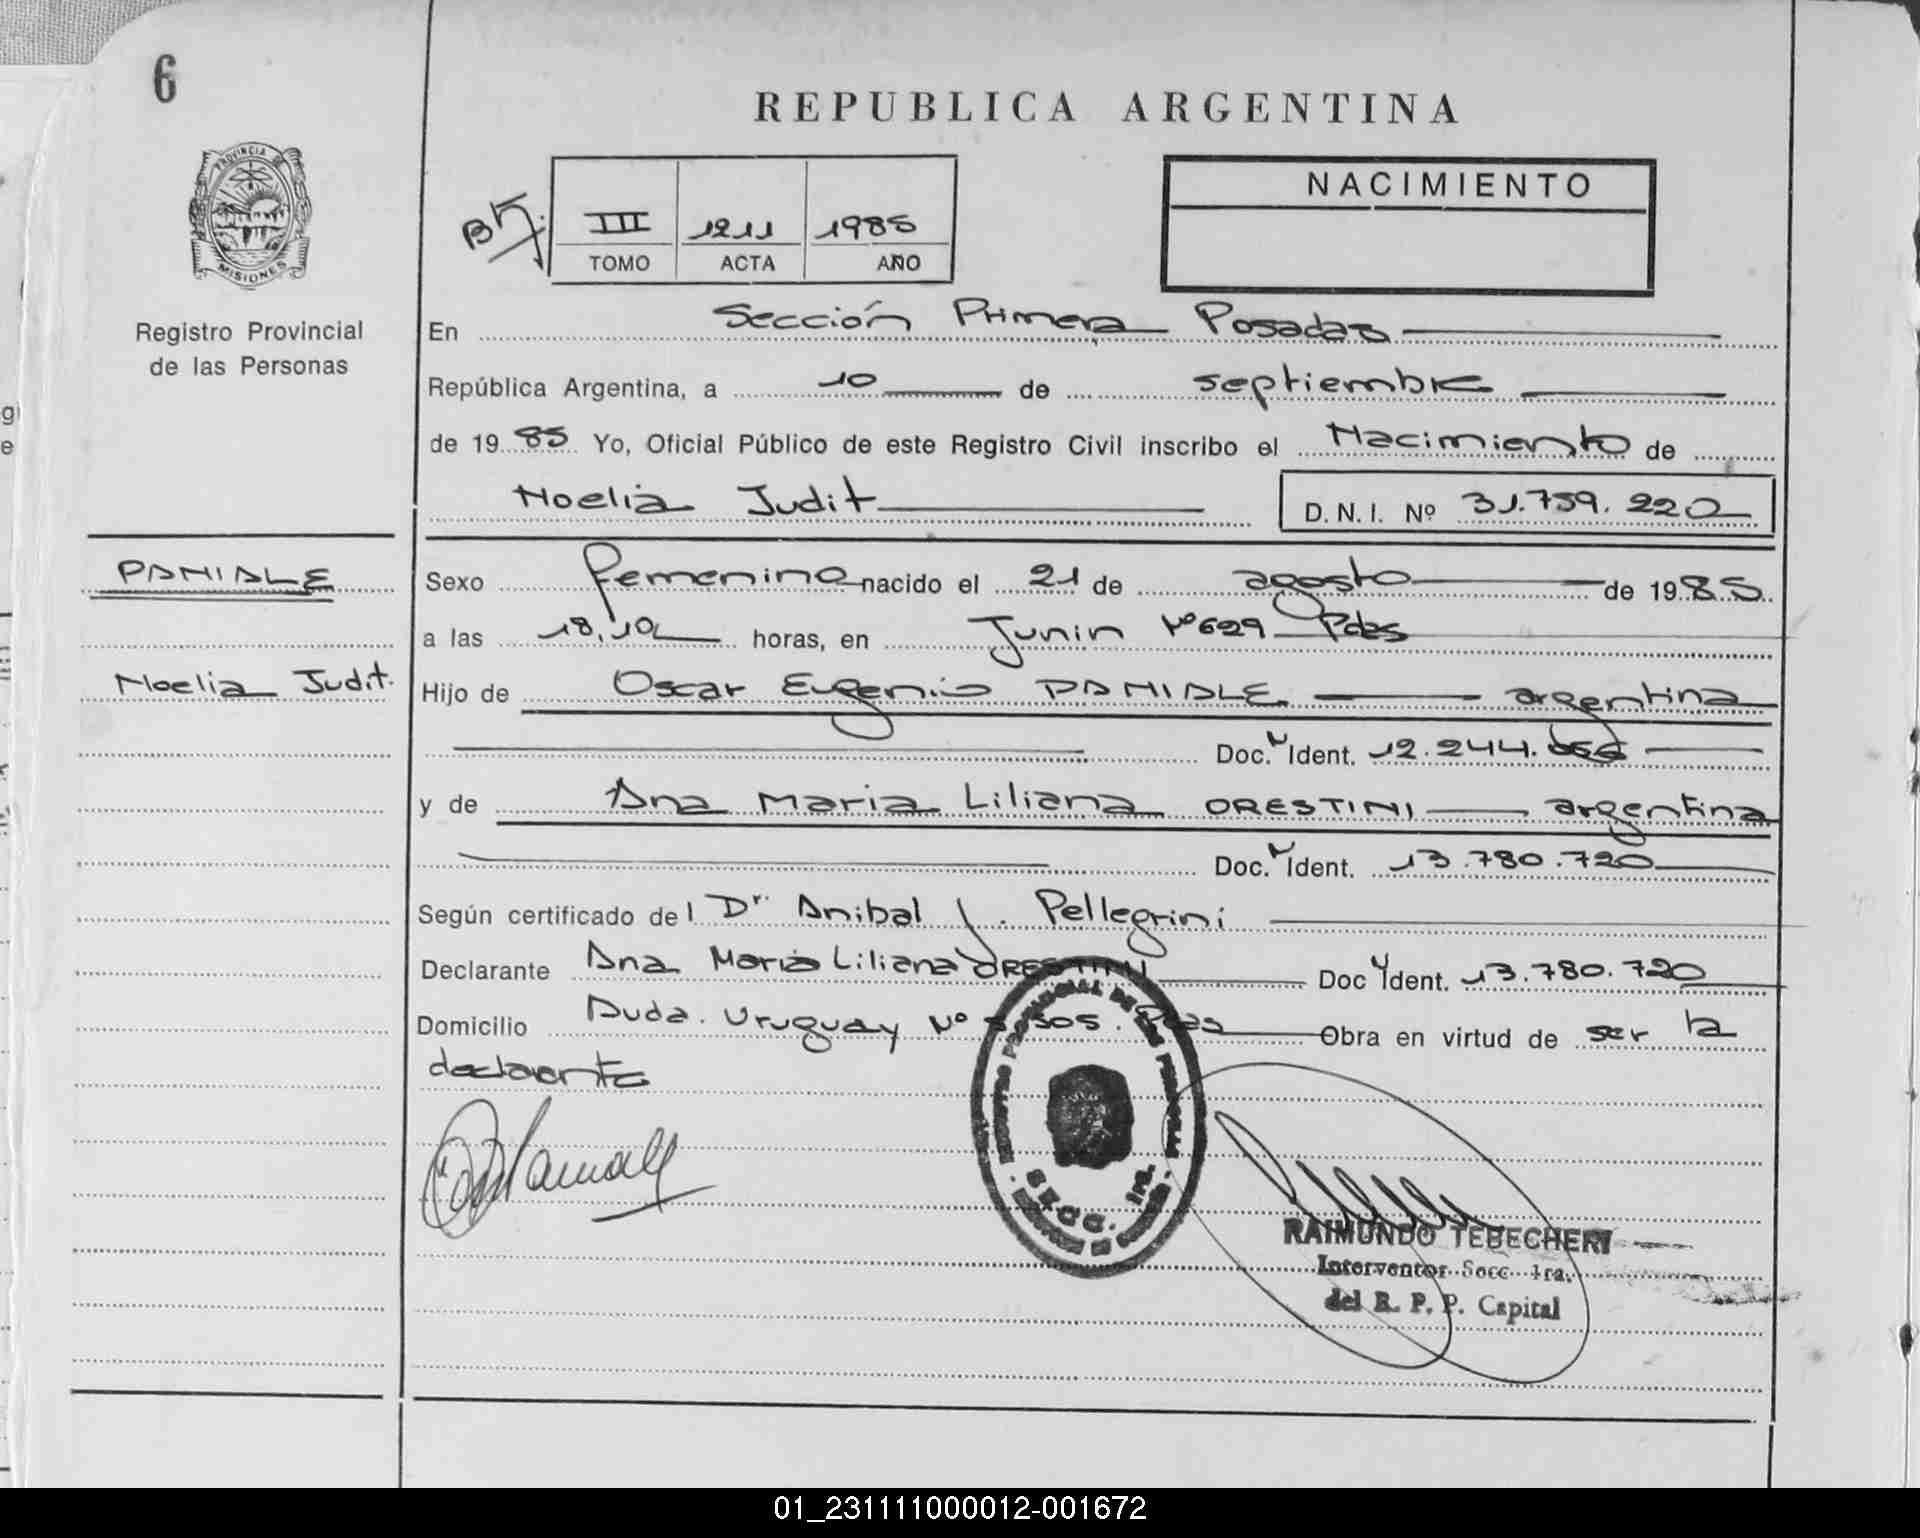 6
REPUBLICA ARGENTINA
PROVINCIA DE
MISIONES
Registro Provincial
de las Personas
NACIMIENTO
III 1211 1985
TOMO ACTA AÑO
En Sección Primera Posadas
República Argentina, a 10 de septiembre
de 1985 Yo, Oficial Público de este Registro Civil inscribo el Nacimiento de
Noelia Judit D.N.I. Nº 31.759.220
Sexo femenino nacido el 21 de agosto de 1985
a las 18,10 horas, en Junin Nº 629 Pdas
Noelia Judit.
Hijo de Oscar Eugenio argentina
Doc. Ident. 12.244.
y de Ana Maria Liliana ORESTINI argentina
Doc. Ident. 13.780.720
Según certificado del Dr. Anibal J. Pellegrini
Declarante Ana Maria Liliana ORESTINI Doc Ident. 13.780.720
Domicilio Avda. Uruguay Nº Pdas Obra en virtud de ser la
declarante
REGISTRO PROVINCIAL DE LAS PERSONAS
SECC. 1ra.
RAIMUNDO TEBECHERI
Interventor Secc. 1ra.
del R. P. P. Capital
01_231111000012-001672